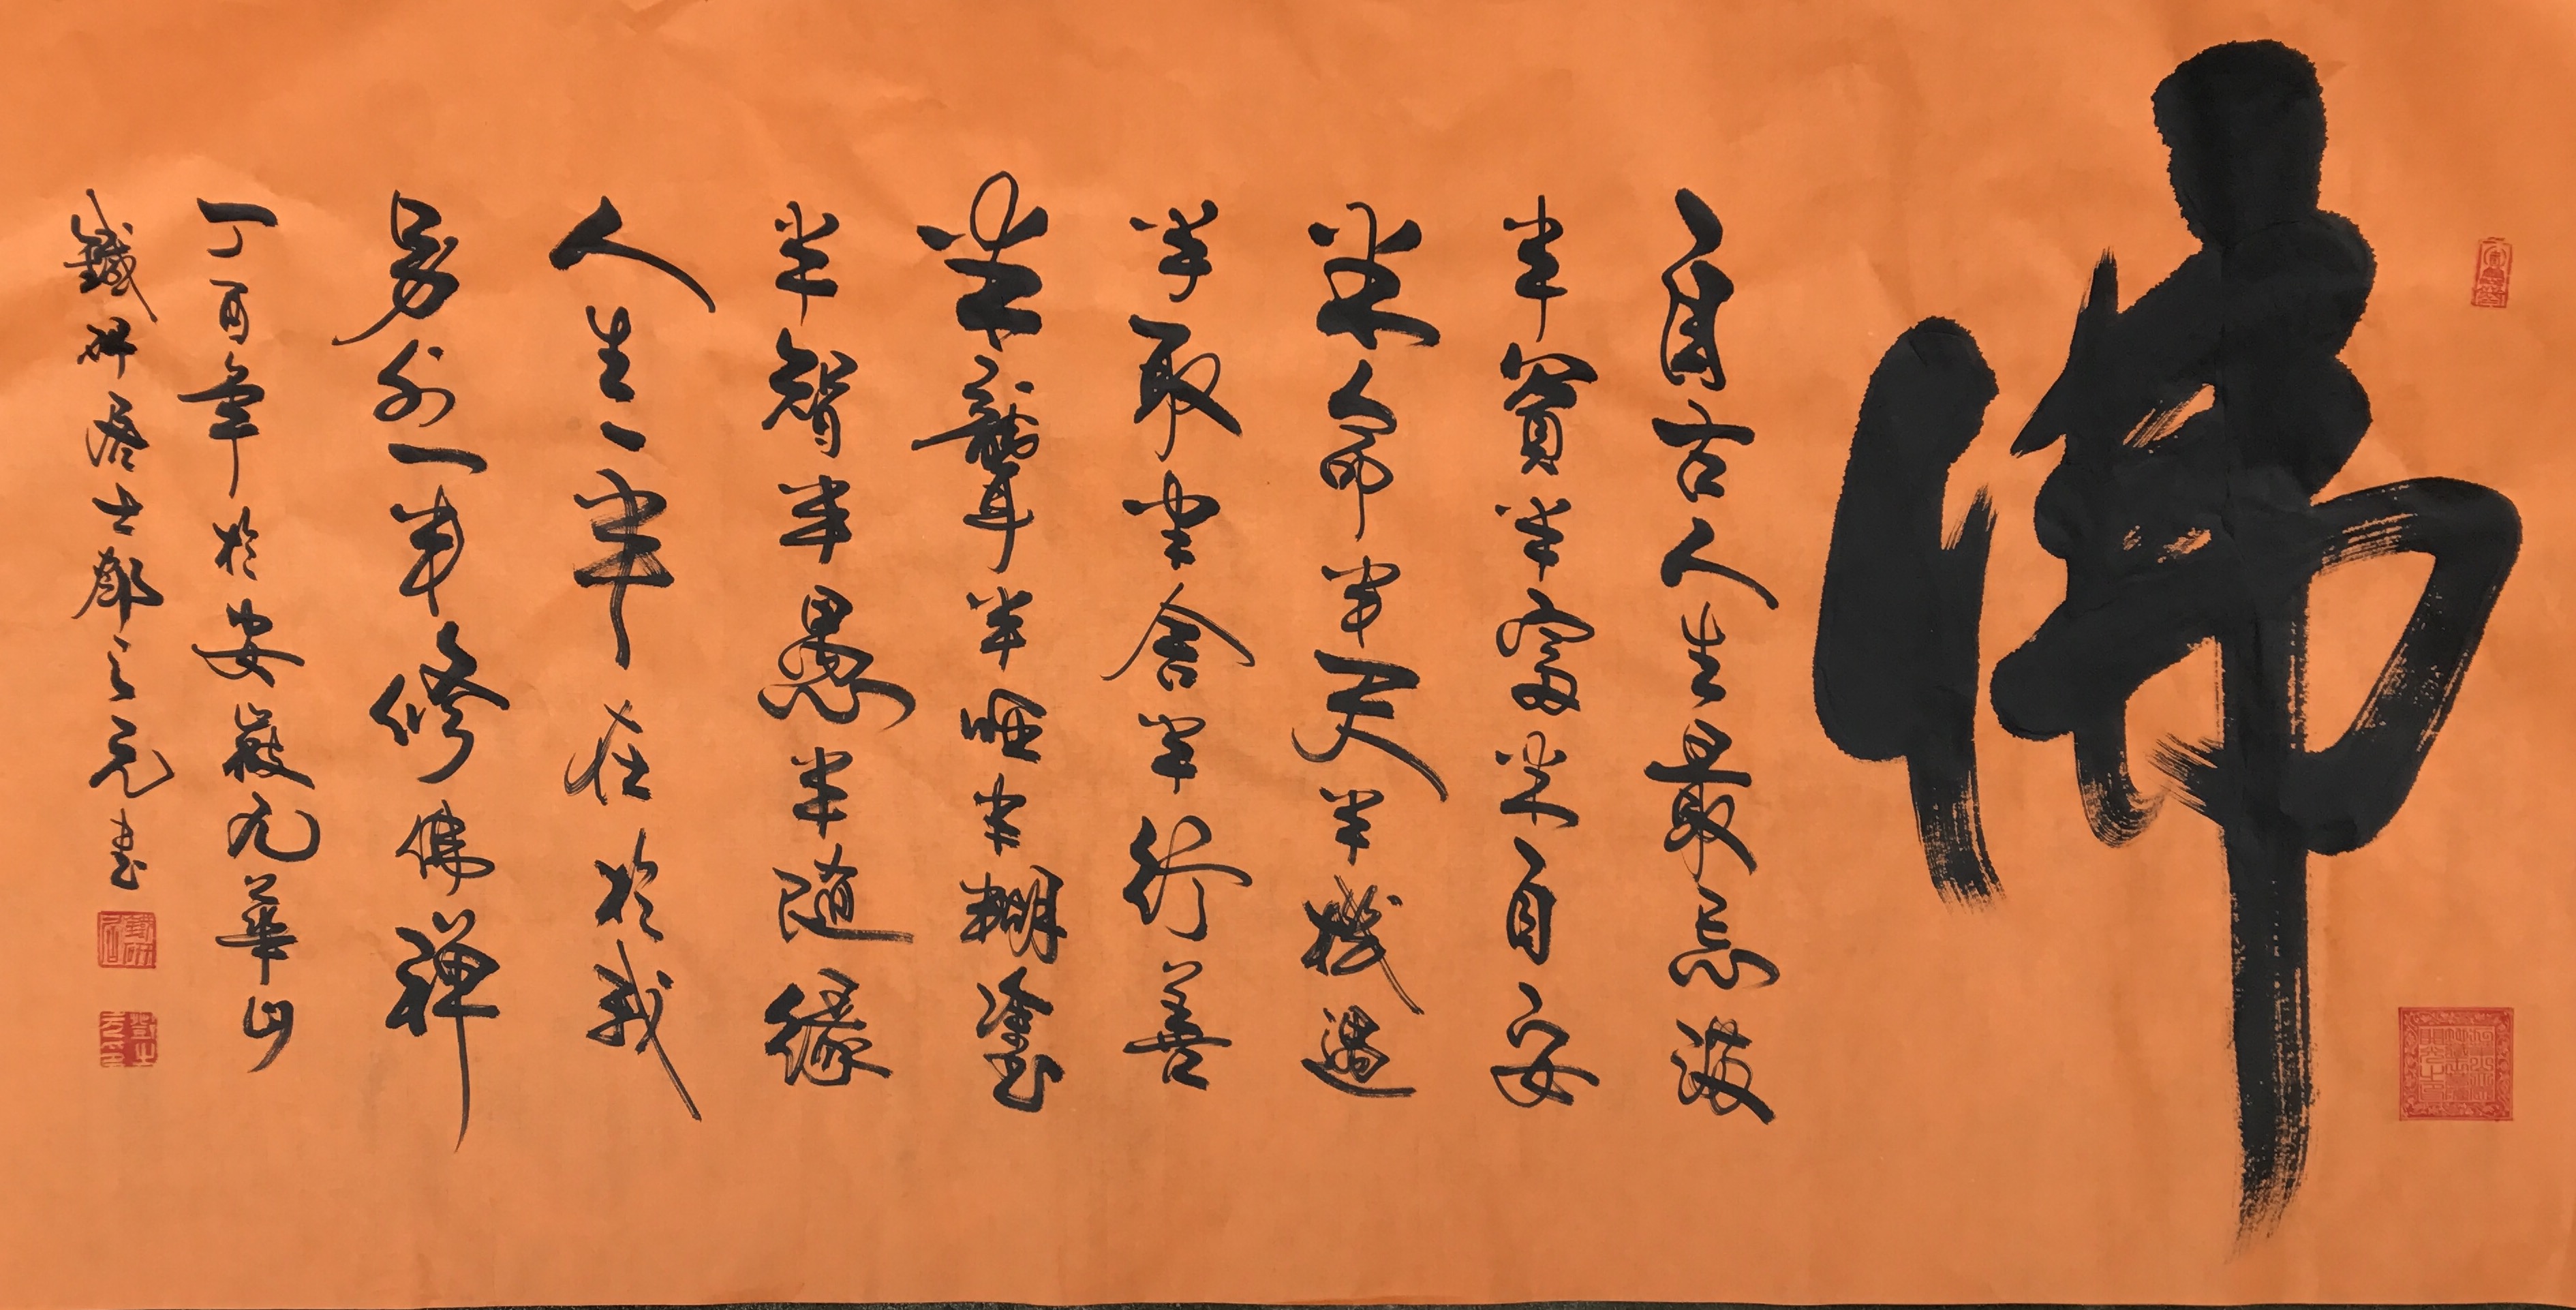 佛
自古人生最忌滿
半貧半富半自安
半命半天半機遇
半取半舍半行善
半聾半啞半糊塗
半智半愚半隨緣
人生一半在於我
另外一半修佛禪
丁酉年於安徽九華山
鐵砚居士鄧之元書